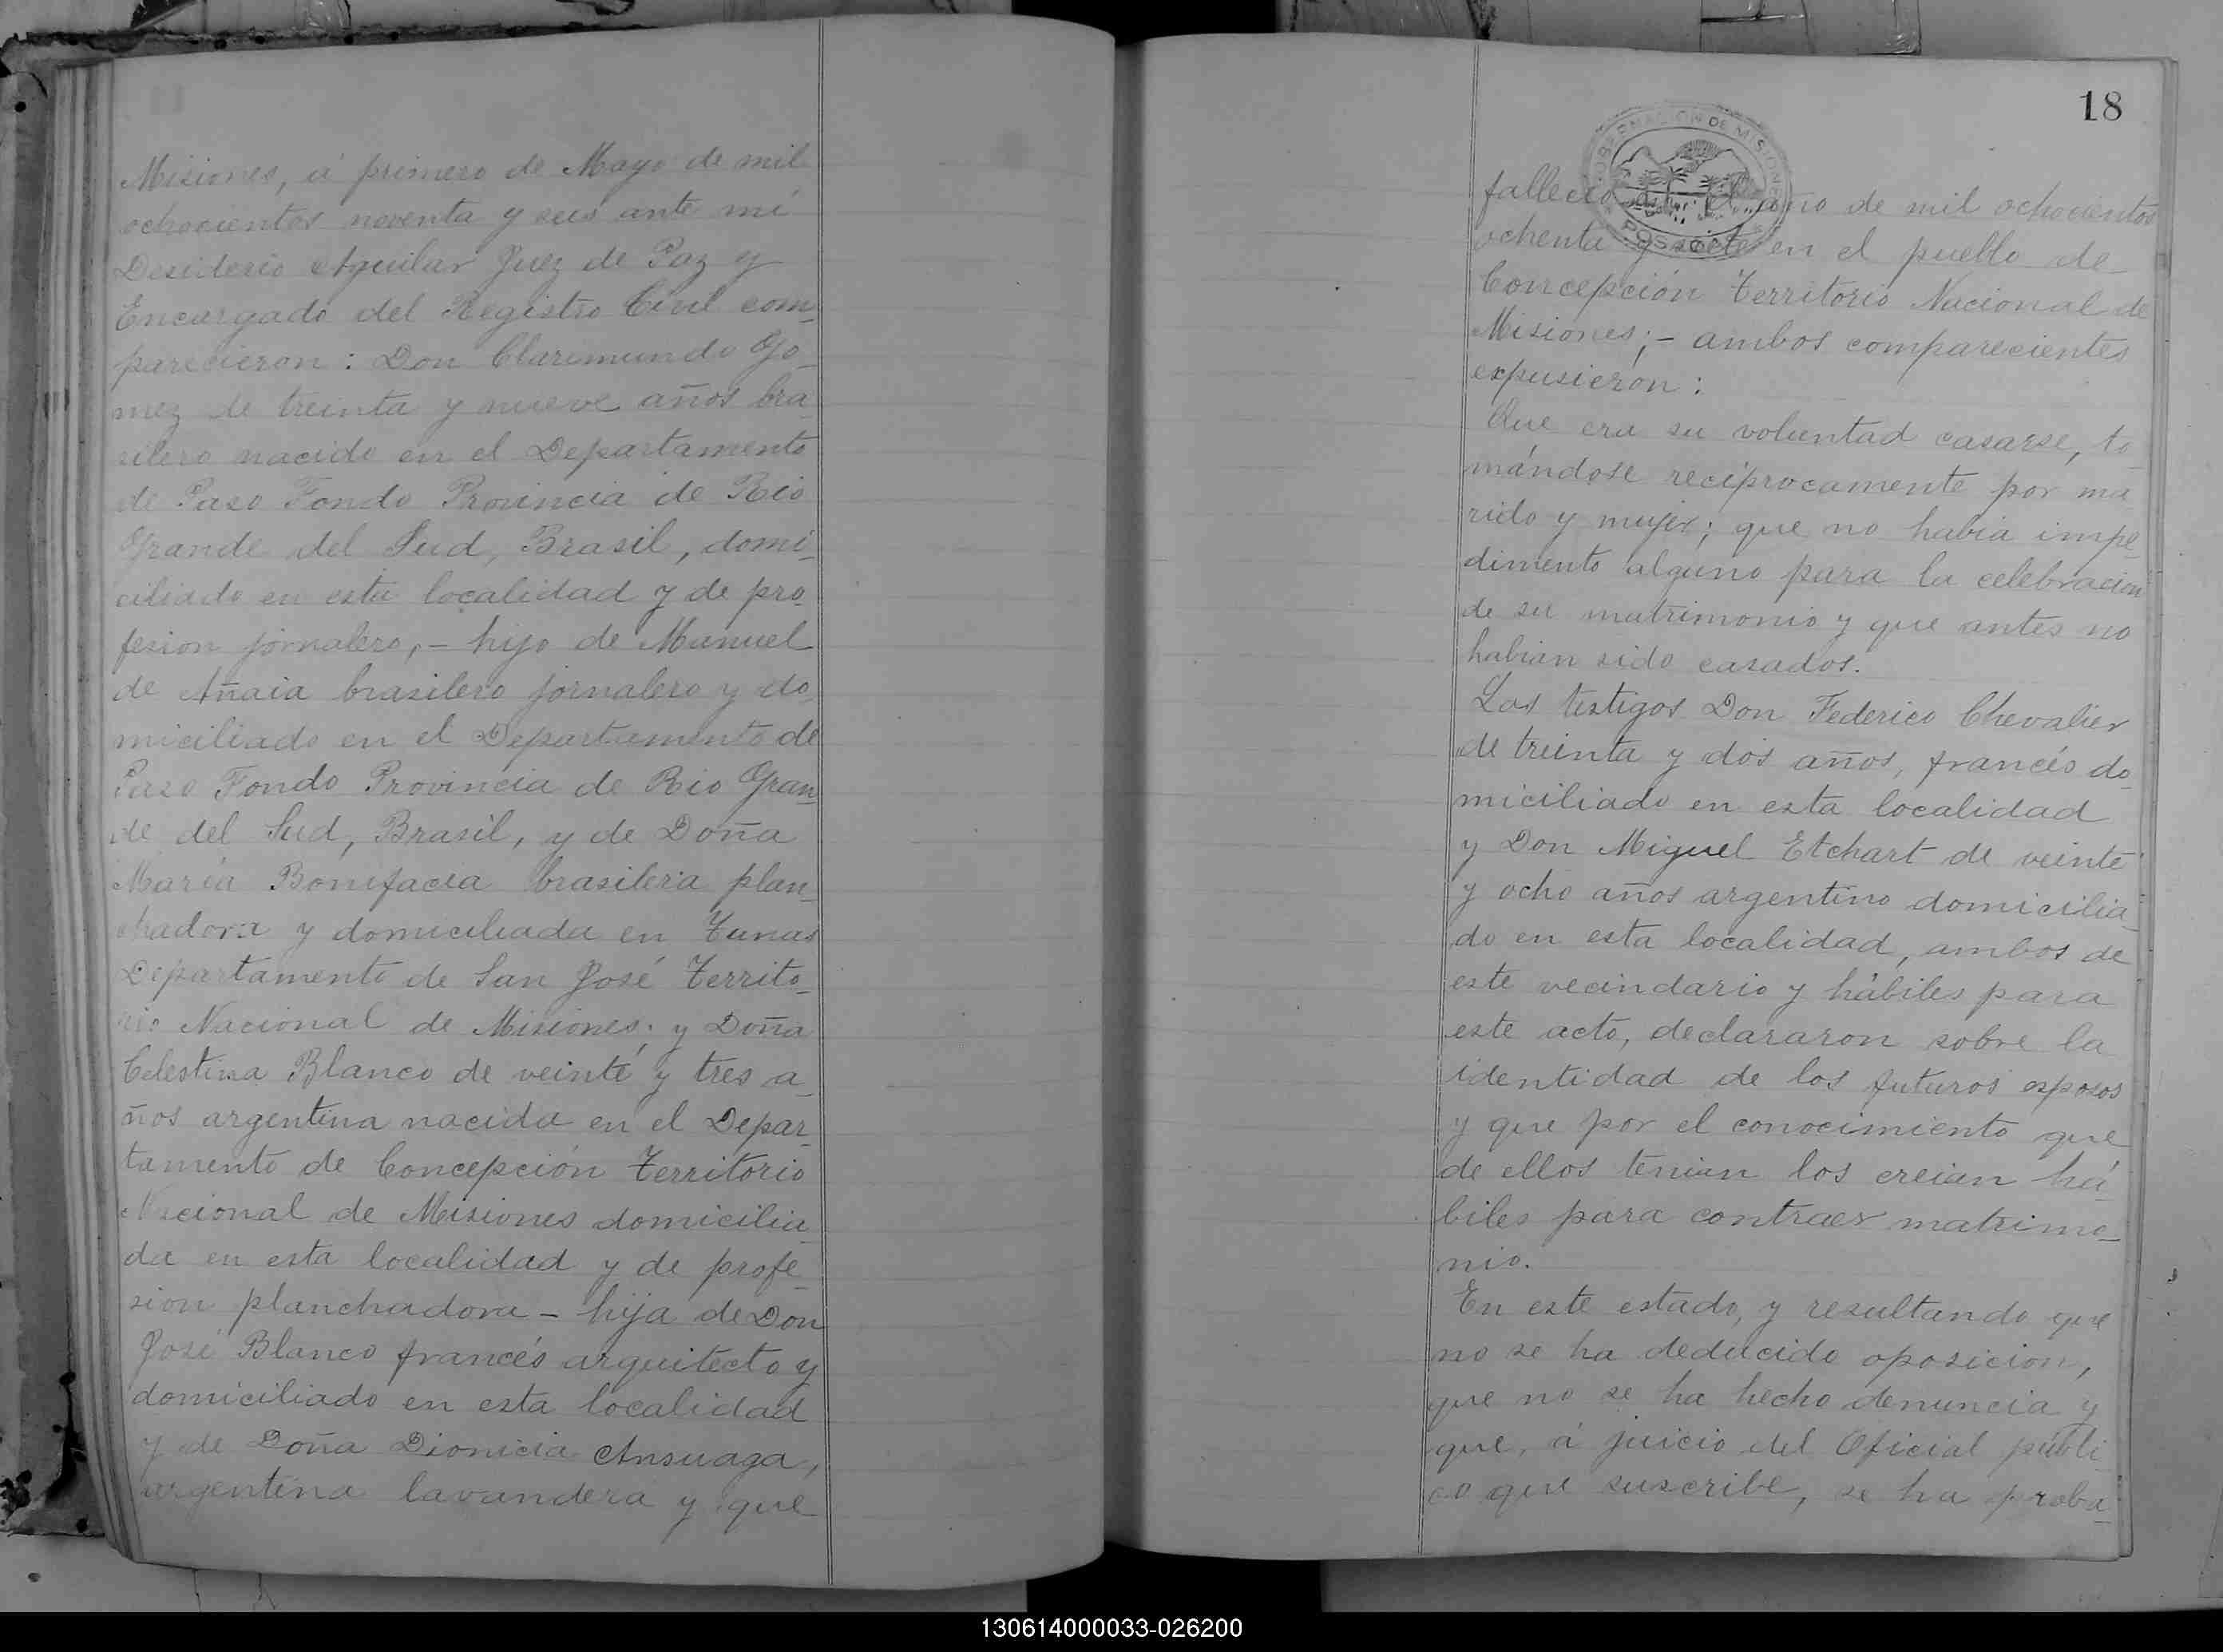 Misiones, á primero de Mayo de mil
ochocientos noventa y seis ante mí
Desiderio Aguilar Juez de Paz y
Encargado del Registro Civil com_
parecieron: Don Claremundo Go_
mez de treinta y nueve años bra_
silero nacido en el Departamento
de Paso Fondo Provincia de Rio
Grande del Sud, Brasil, domi_
ciliado en esta localidad y de pro_
fesion jornalero,- hijo de Manuel
de Añaia brasilero jornalero y do_
miciliado en el Departamento de
Paso Fondo Provincia de Rio Gran_
de del Sud, Brasil, y de Doña
María Bonifacia brasilera plan_
chadora y domiciliada en Tunas
Departamento de San José Territo_
rio Nacional de Misiones; y Doña
Celestina Blanco de veinte y tres a_
ños argentina nacida en el Depar_
tamento de Concepción Territorio
Nacional de Misiones domicilia_
da en esta localidad y de profe_
sion planchadora - hija de Don
José Blanco francés arquitecto y
domiciliado en esta localidad
y de Doña Dionicia Ansuaga,
argentina lavandera y que
18
GOBERNACION DE MISIONES
POSADAS
falleció en el año de mil ochocientos
ochenta y siete en el pueblo de
Concepción Territorio Nacional de
Misiones;- ambos comparecientes
expusieron:
Que era su voluntad casarse, to_
mándose recíprocamente por ma_
rido y mujer; que no habia impe_
dimento alguno para la celebracion
de su matrimonio y que antes no
habian sido casados.
Los testigos Don Federico Chevalier
de treinta y dos años, francés do_
miciliado en esta localidad
y Don Miguel Etchart de veinte
y ocho años argentino domicilia_
do en esta localidad, ambos de
este vecindario y hábiles para
este acto, declararon sobre la
identidad de los futuros esposos
y que por el conocimiento que
de ellos tenian los creian há_
biles para contraer matrimo_
nio.
En este estado, y resultando que
no se ha deducido oposicion,
que no se ha hecho denuncia y
que, á juicio del Oficial públi_
co que suscribe, se ha proba_
130614000033-026200